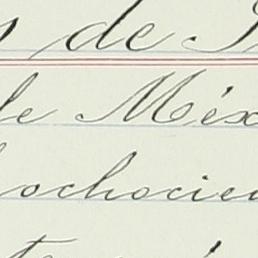 s de
de Méx
ochocien